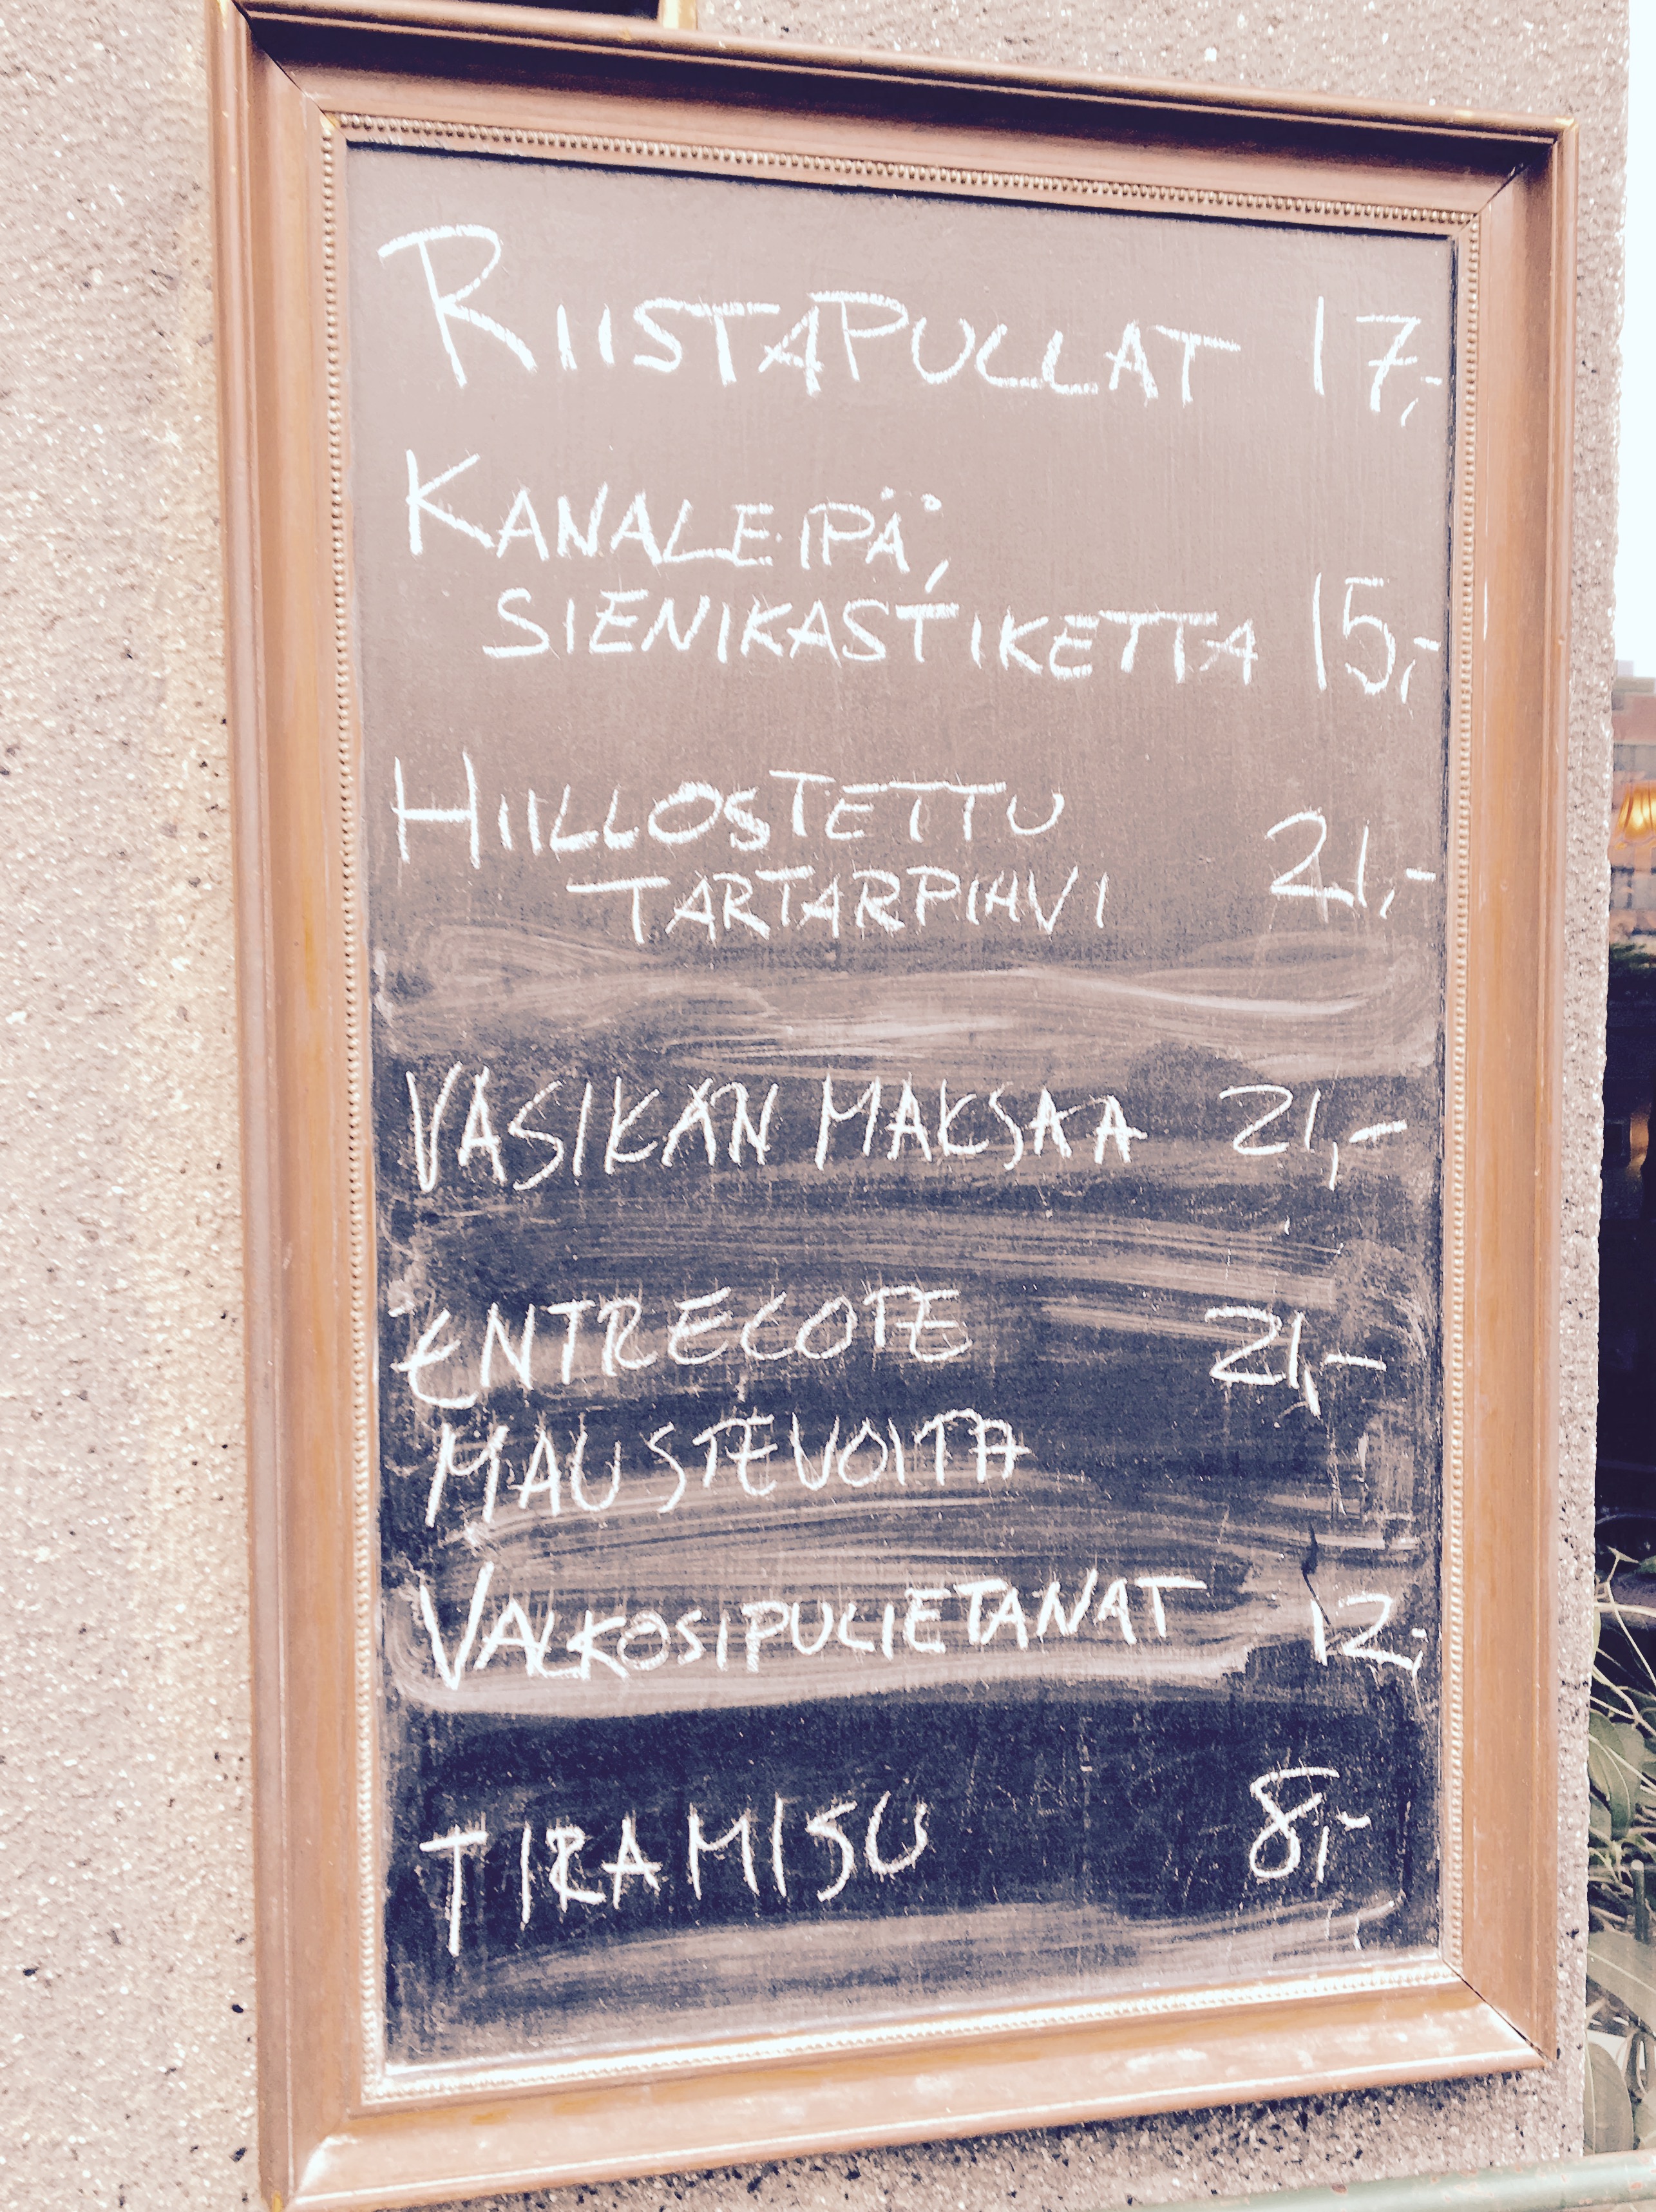 RIISTAPULLAT 17,-
KANALEIPÄ,
SIENIKASTIKETTA 15,-
HIILLOSTETTU
TARTARPIHVI 21,-
VASIKAN MAKSAA 21,-
ENTRECOTE 21,-
MAUSTEVOITA
VALKOSIPULIETANAT 12,-
TIRAMISU 8,-